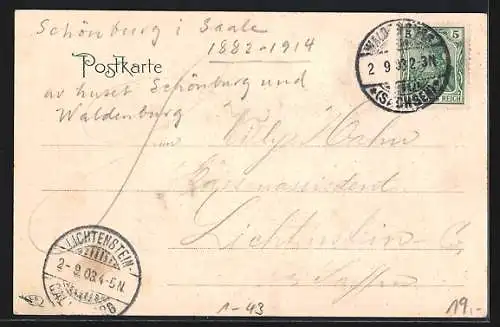 Schönburg i Saale
1882-1914
Postkarte
av huset Schönburg und
Waldenburg
WALDENBURG
2 9 03 2-3N
*(SACHSEN)*
5 5
REICH
Hahn
Lichtenstein-C
LICHTENSTEIN-
2-9.03.4-5N.
CALLNBERG
1-43
19.-